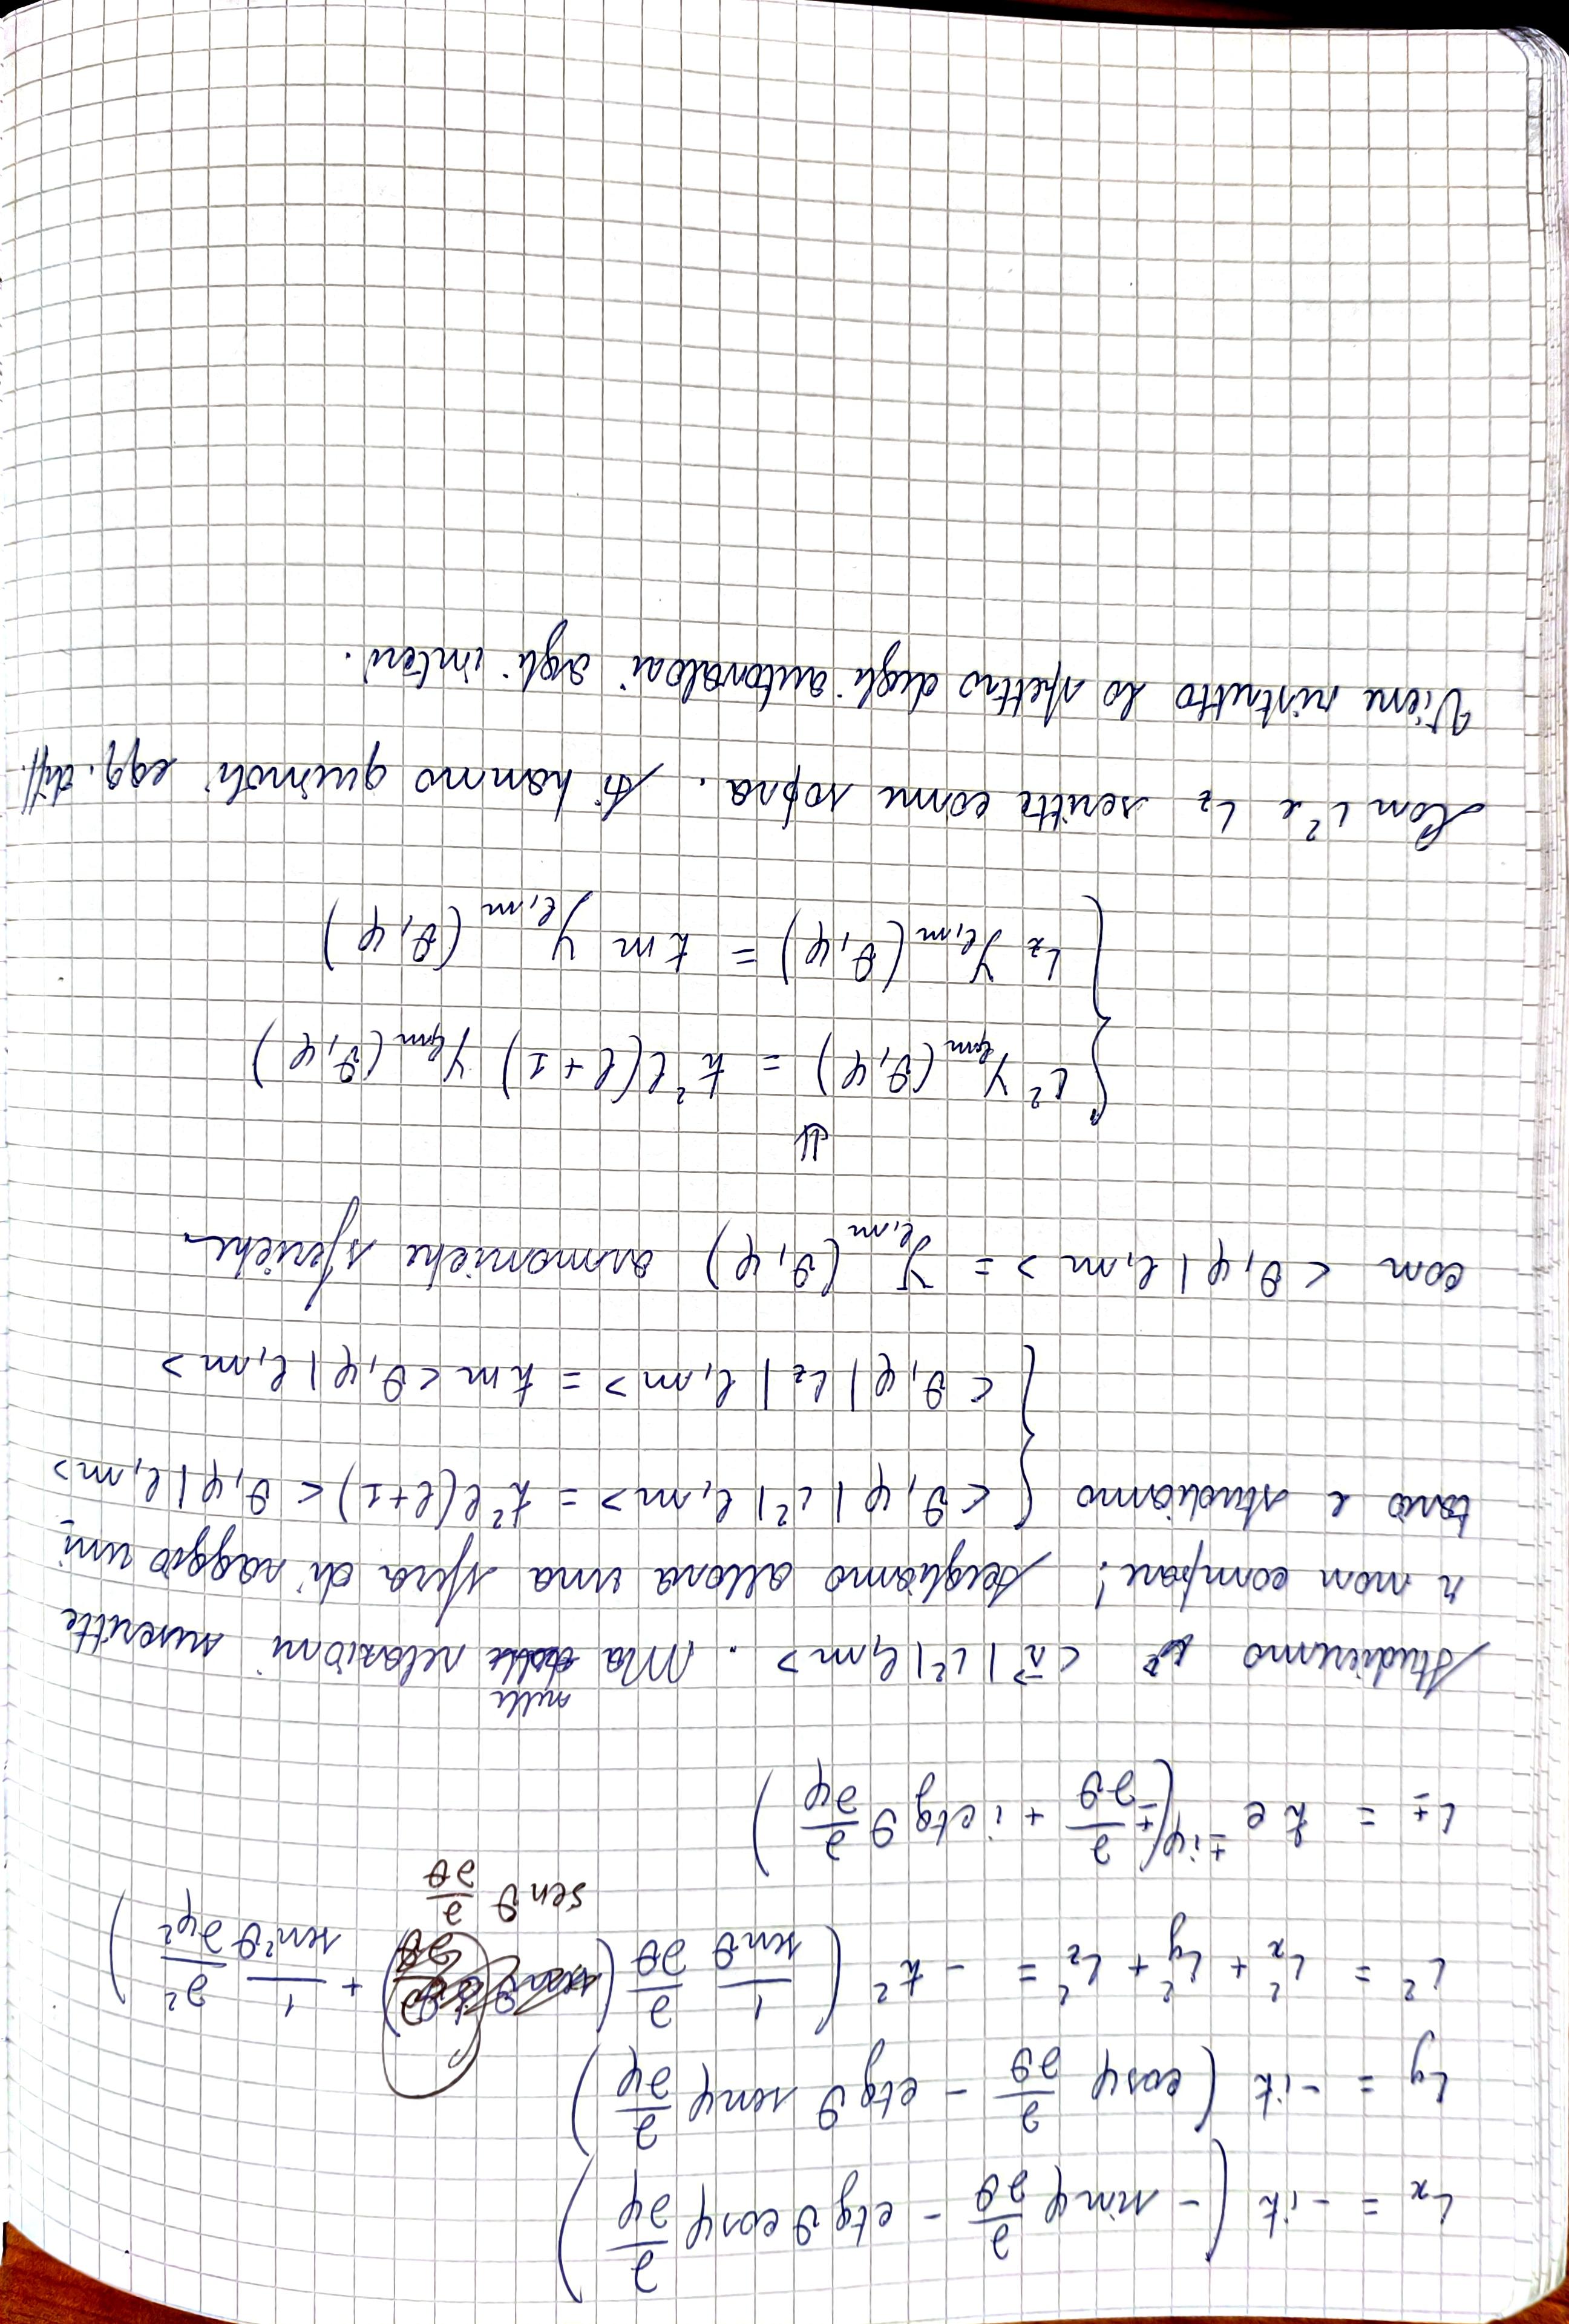 Lx = -iħ ( - sinφ ∂/∂θ - ctgθ cosφ ∂/∂φ )
Ly = -iħ ( cosφ ∂/∂θ - ctgθ senφ ∂/∂φ )
L² = Lx² + Ly² + Lz² = - ħ² ( 1/senθ ∂/∂θ ( senθ ∂/∂θ ) + 1/sen²θ ∂²/∂φ² )
L± = ħ e^±iφ ( ± ∂/∂θ + i ctgθ ∂/∂φ )
Studieremo < r⃗ | L² | l,m > . Ma nelle relazioni suscritte
r non compare! Scegliamo allora una sfera di raggio uni
tario e studiamo { < θ,φ | L² | l,m > = ħ² l(l+1) < θ,φ | l,m >
< θ,φ | Lz | l,m > = ħm < θ,φ | l,m >
con < θ,φ | l,m > = Y l,m (θ,φ) armoniche sferiche
⇓
{ L² Y l,m (θ,φ) = ħ² l(l+1) Y l,m (θ,φ)
Lz Y l,m (θ,φ) = ħm Y l,m (θ,φ)
Con L² e Lz scritte come sopra. Si hanno quindi eqq. diff.
Viene ristretto lo spettro degli autovalori agli interi.